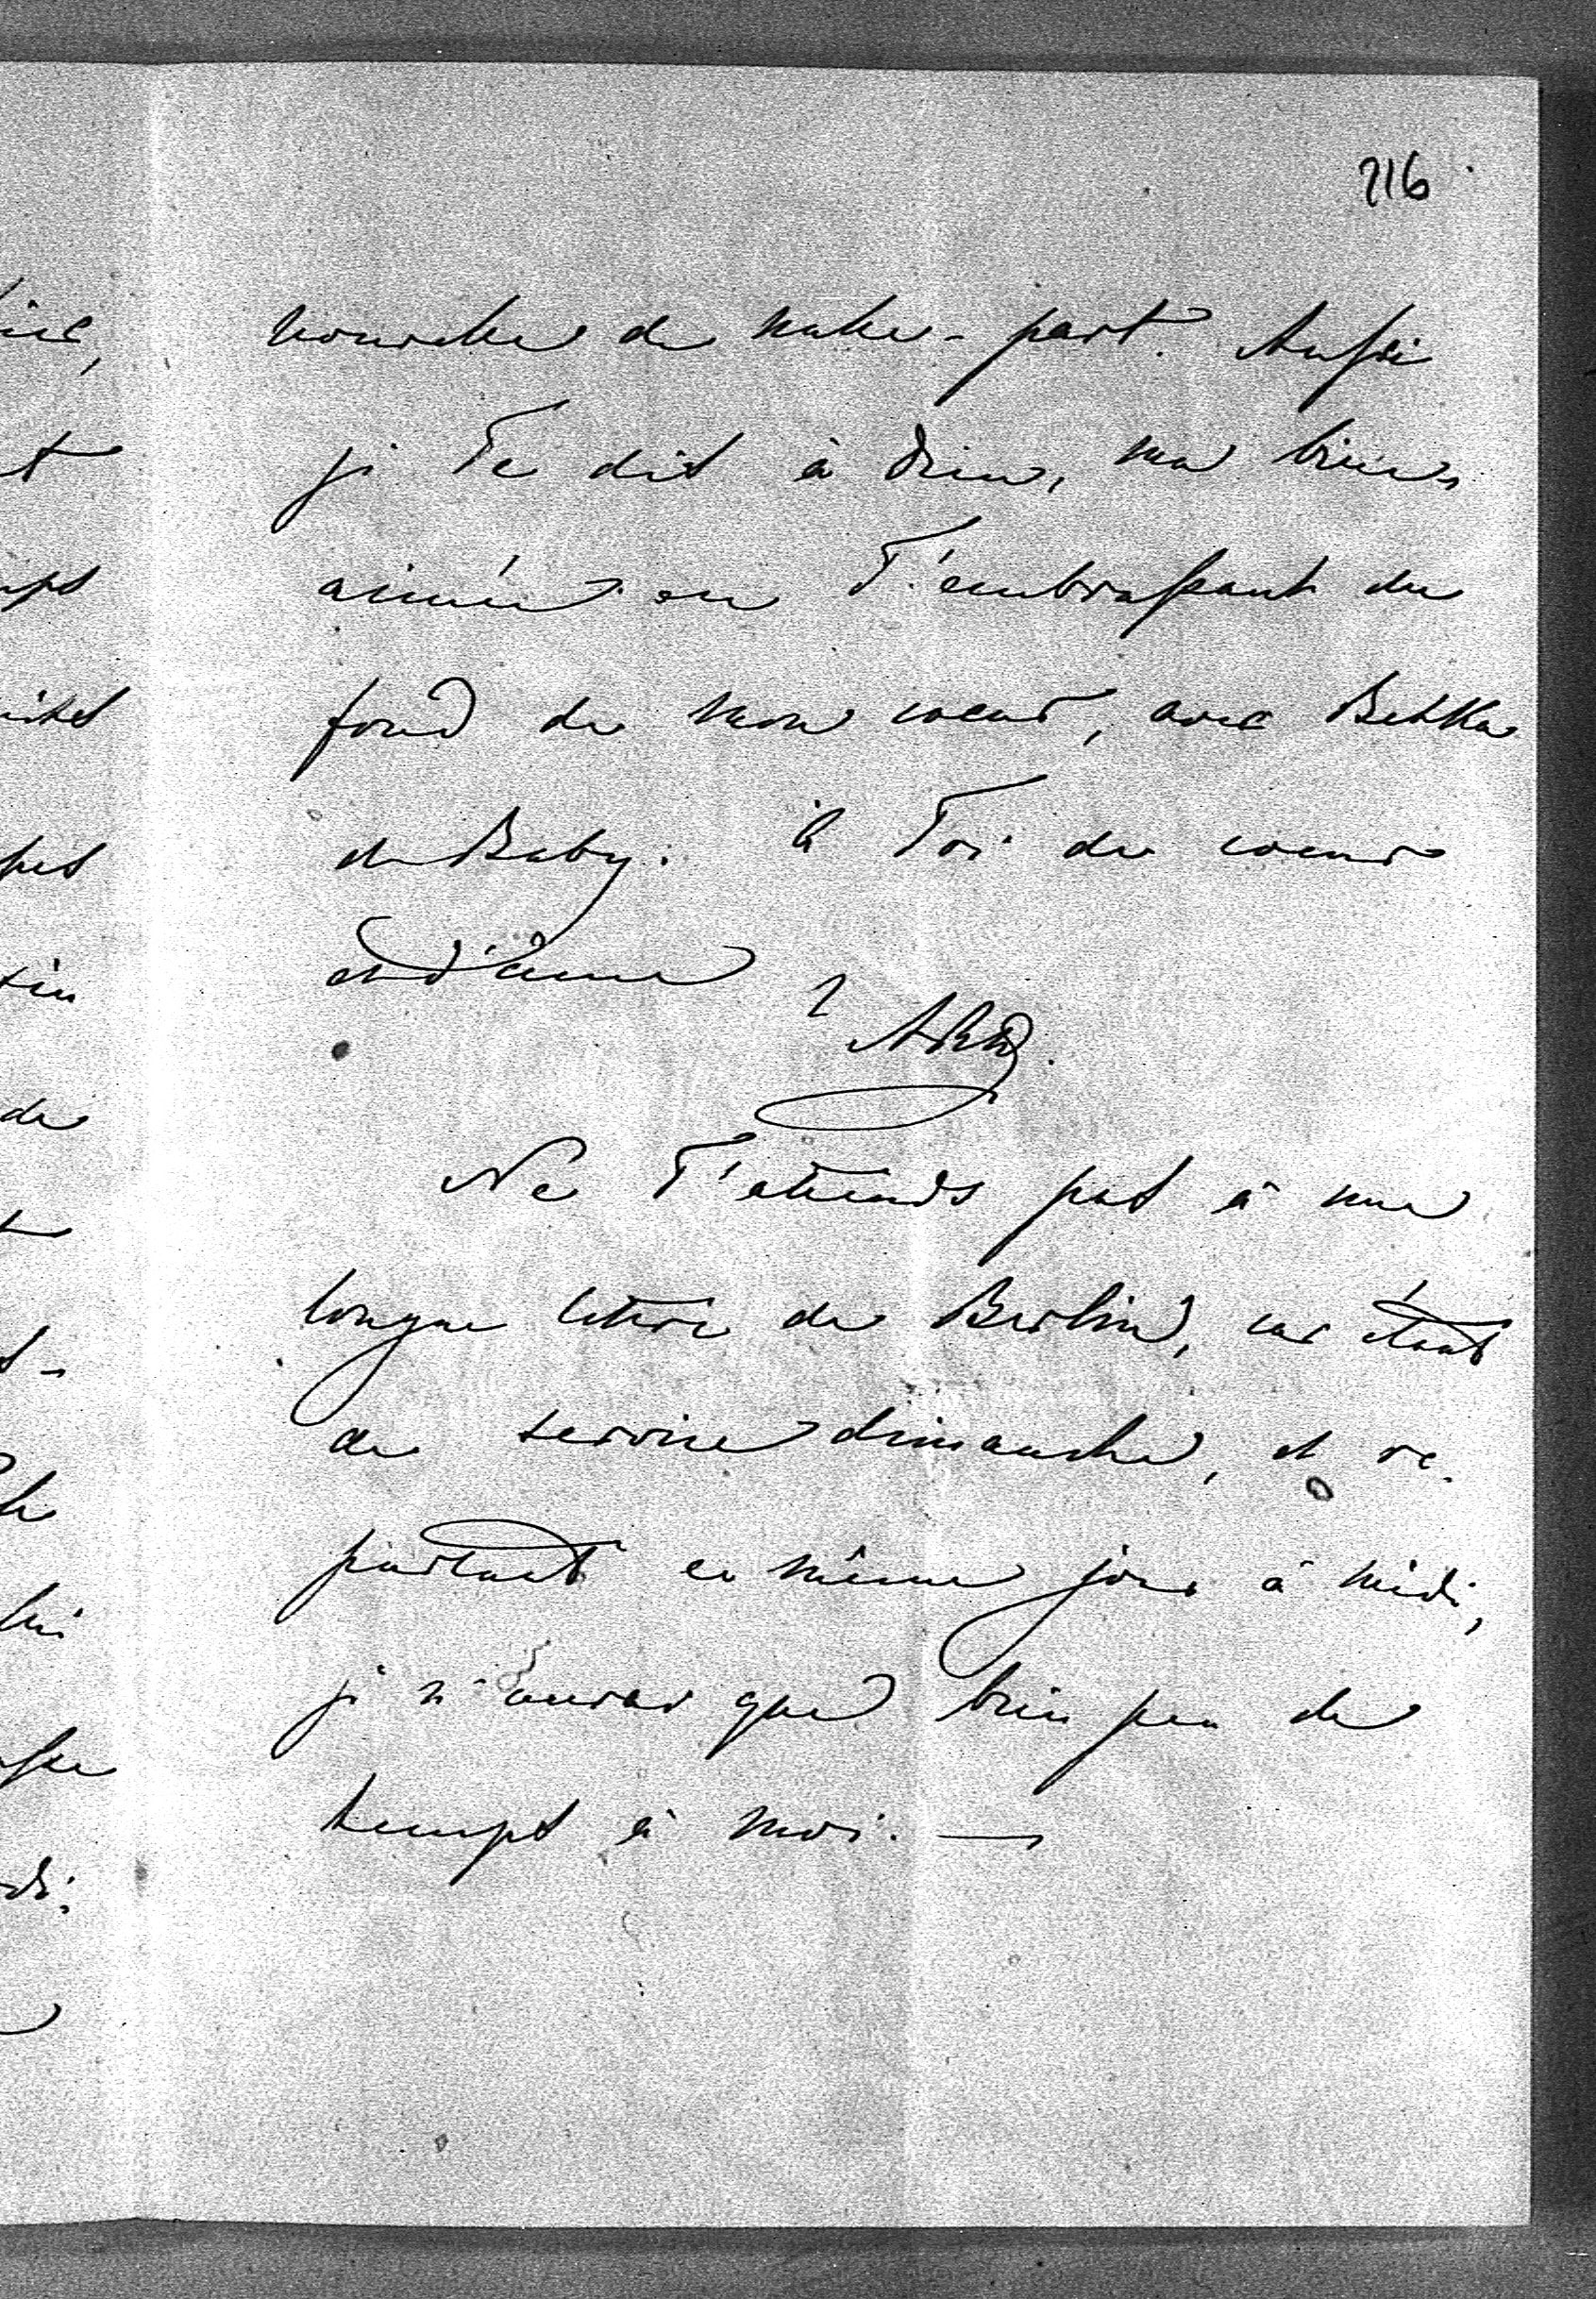 216
nouvelles de nulle-part. Aussi
je Te dis à Dieu, ma bien
aimée en T'embrassant du
fond de mon coeur, avec
et Baby. à Toi de coeur
et d'âme
Ne T'attends pas à une
longue lettre de Berlin, car étant
de service dimanche, et re-
partant ce même jour à midi,
je n'aurai que bien peu de
temps à moi. —